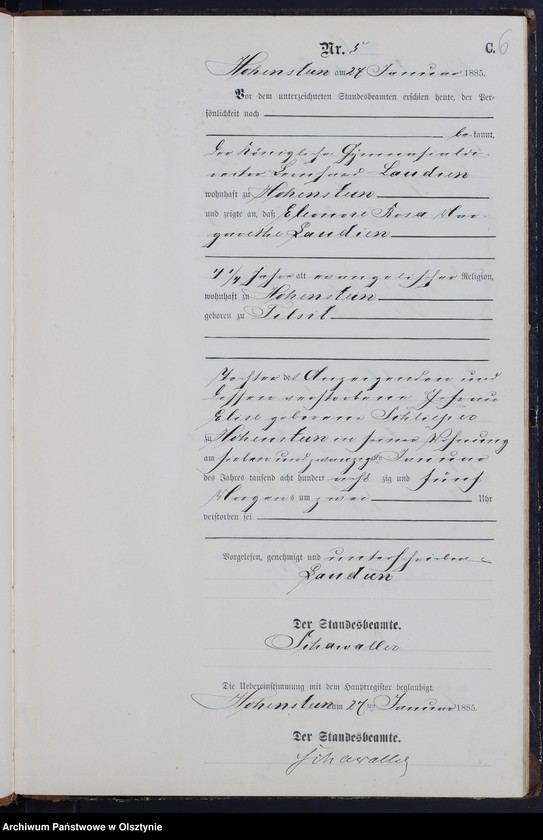 Nr. 5
C. 6
Hohenstein am 27 Januar 1885.
Vor dem unterzeichneten Standesbeamten erschien heute, der Per-
sönlichkeit nach
bekannt,
der Königliche Gymnasialdi-
rector Laudien
wohnhaft zu Hohenstein
und zeigte an, daß Eleonore Rosa Mar-
garethe Laudien
Jahre alt evangelischer Religion,
wohnhaft zu Hohenstein
geboren zu Tilsit
Tochter des Anzeigenden und
dessen verstorbene Ehefrau
Elise geborene
zu Hohenstein in seiner Wohnung
am sieben und zwanzigsten Januar
des Jahres tausend acht hundert achtzig und fünf
Morgens um zwei Uhr
verstorben sei
Vorgelesen, genehmigt und unterschrieben
Laudien
Der Standesbeamte.
Schawaller
Die Uebereinstimmung mit dem Hauptregister beglaubigt.
Hohenstein am 27 ten Januar 1885.
Der Standesbeamte.
Schawaller
Archiwum Państwowe w Olsztynie